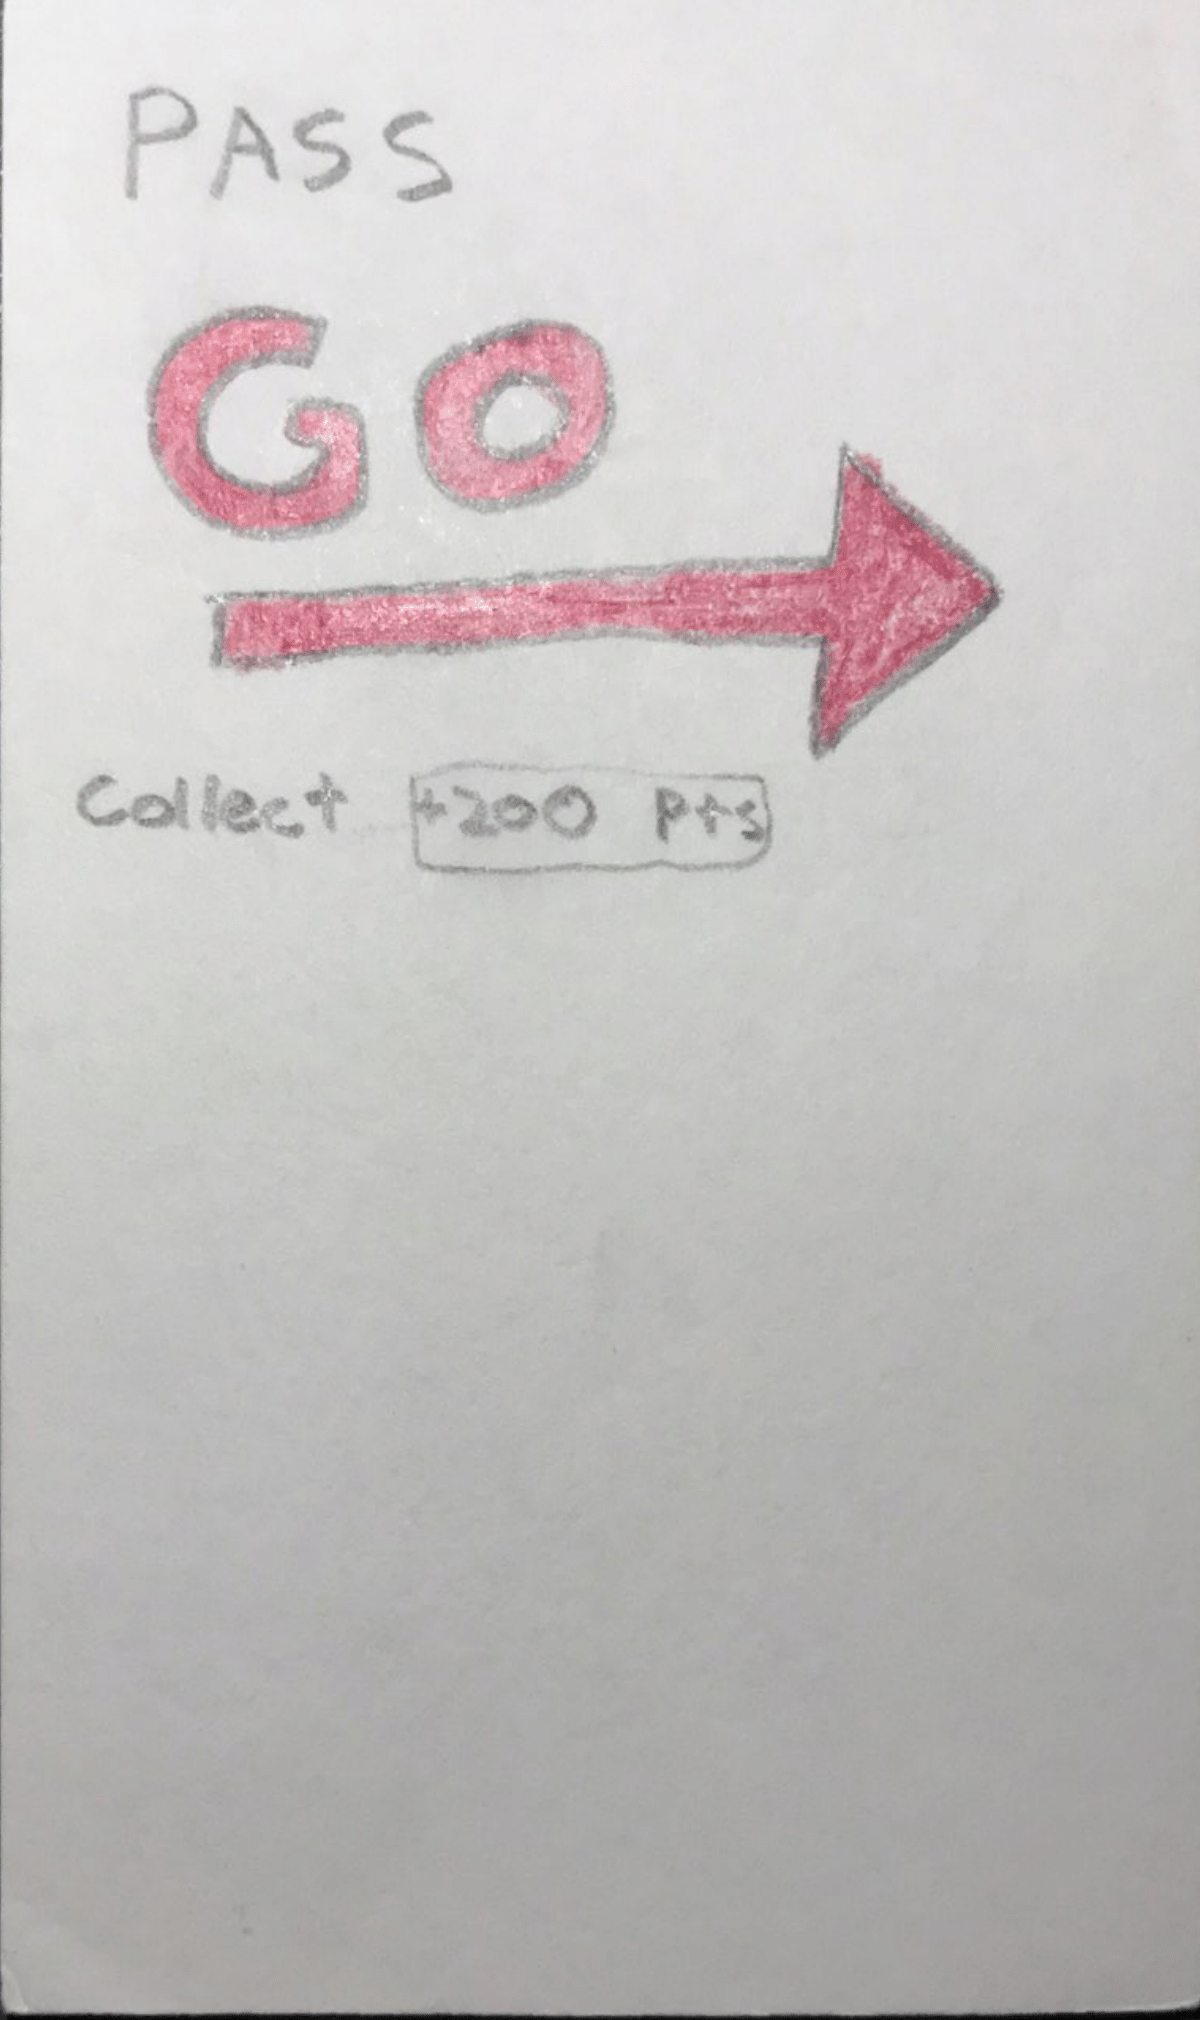 PASS
GO
Collect +200 Pts